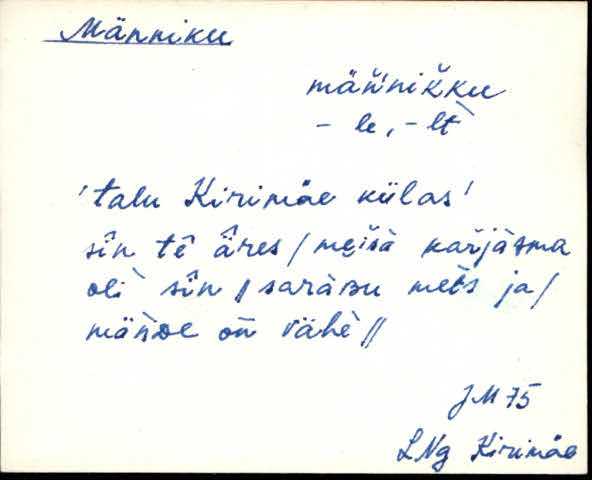 Männiku
män̆nik̆ku
– le, – lt̀
'talu Kirimäe külas'
sîn tê âres / mei̯sà kar̆jàsma
oli̇̀ sîn // saràpu mets ja /
män̆De on̄ vähè //
JM 75
LNg Kirimäe